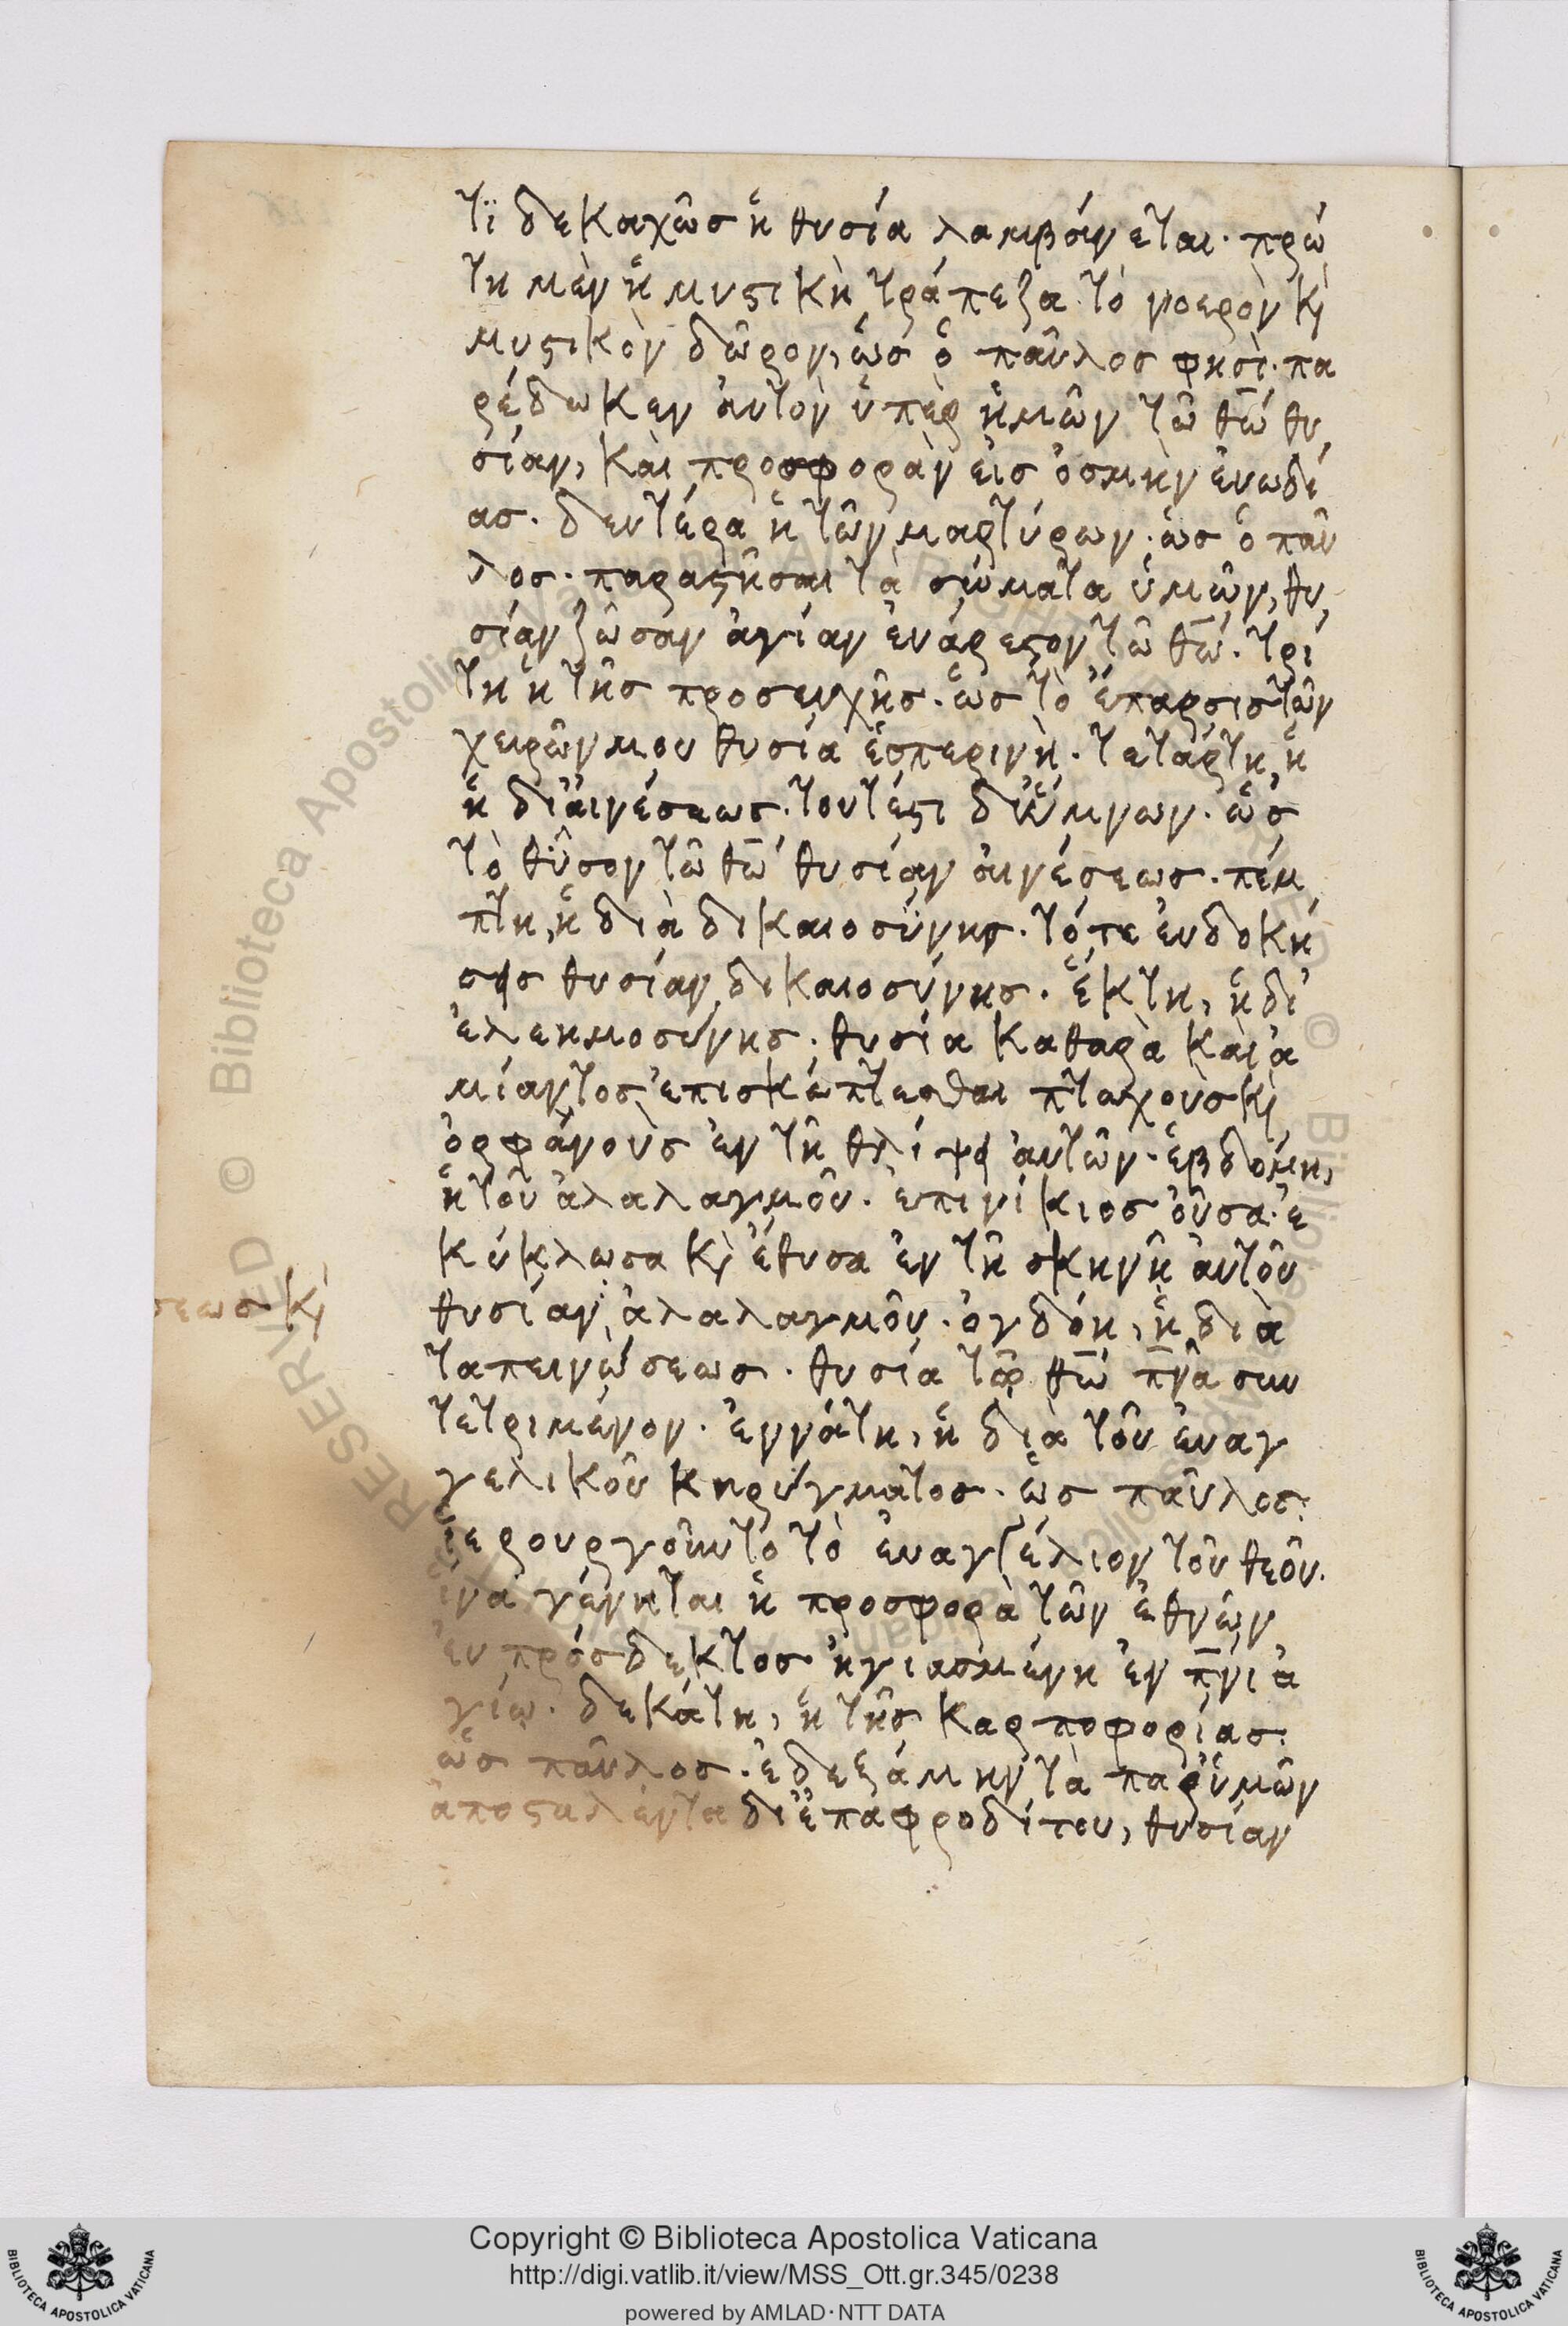 τϊ δεκαχῶς ἡ θυσία λαμβάνεται· πρώ
τη μὲν ἡ μυϛικὴ τράπεζα τὸ νοερὸν κὶ
μυϛικὸν δῶρον, ὡς ὁ παῦλος φησὶ· πα
ρέδωκεν ἀυτὸν ὑπὲρ ἡμῶν τῶ θῶ θυ
σίαν, καὶ προσφορὰν εἰς ὀσμὴν ἐυωδί
ας· δευτέρα ἡ τῶν μαρτύρων· ὡς ὁ παῦ
λος· παραϛῆσαι τὰ σώματα ὑμῶν, θυ
σίαν ζῶσαν ἁγίαν ἐυάρεϛον τῶ θῶ· τρί
τη ἡ τῆς προσευχῆς· ὡς τὸ ἔπαρσις τῶν
χειρῶν μου θυσία ἑσπερινὴ· τετάρτη, ἡ
ἡ δι' ἀινέσεως· τουτέϛι δι' ὕμνων· ὡς
τὸ θῦσον τῶ θῶ θυσίαν ἀινέσεως· πέμ
πτη, ἡ διὰ δικαιοσύνης· τότε ἐυδοκή
σεις θυσίαν δικαιοσύνης· ἕκτη, ἡ δι'
ἐλεημοσύνης· θυσία καθαρὰ καὶ ἀ
μίαντος, ἐπισκέπτεσθαι πτωχοὺς κὶ
ὀρφάνοὺς ἐν τῆ θλίψει ἀυτῶν· ἑβδόμη,
ἡ τοῦ ἀλαλαγμοῦ· ἐπινίκιος οὖσα· ἐ
κύκλωσα κὶ ἔθυσα ἐν τῆ σκηνῆ ἀυτοῦ
θυσίαν ἀλαλαγμοῦ· ὀγδόη, ἡ διὰ
σεως κὶ
ταπεινώσεως· θυσία τῶ θῶ πνᾶ συν
τετριμένον· ἐννάτη, ἡ διὰ τοῦ ἐυαγ
γελικοῦ κηρύγματος· ὡς παῦλος·
ἱερουργοῦντο τὸ ἐυαγγέλιον τοῦ θεοῦ·
ἵνα γένηται ἡ προσφορὰ τῶν ἐθνῶν
ἐυπρόσδεκτος ἡγιασμένη ἐν πνι ἁ
γίω· δεκάτη, ἡ τῆς καρποφορίας·
ὡς παῦλος· ἐδεξάμην τὰ παρ' ὑμῶν
ἀποϛαλέντα δι' ἐπαφροδίτου, θυσίαν
Copyright © Biblioteca Apostolica Vaticana
http://digi.vatlib.it/view/MSS_Ott.gr.345/0238
powered by AMLAD·NTT DATA